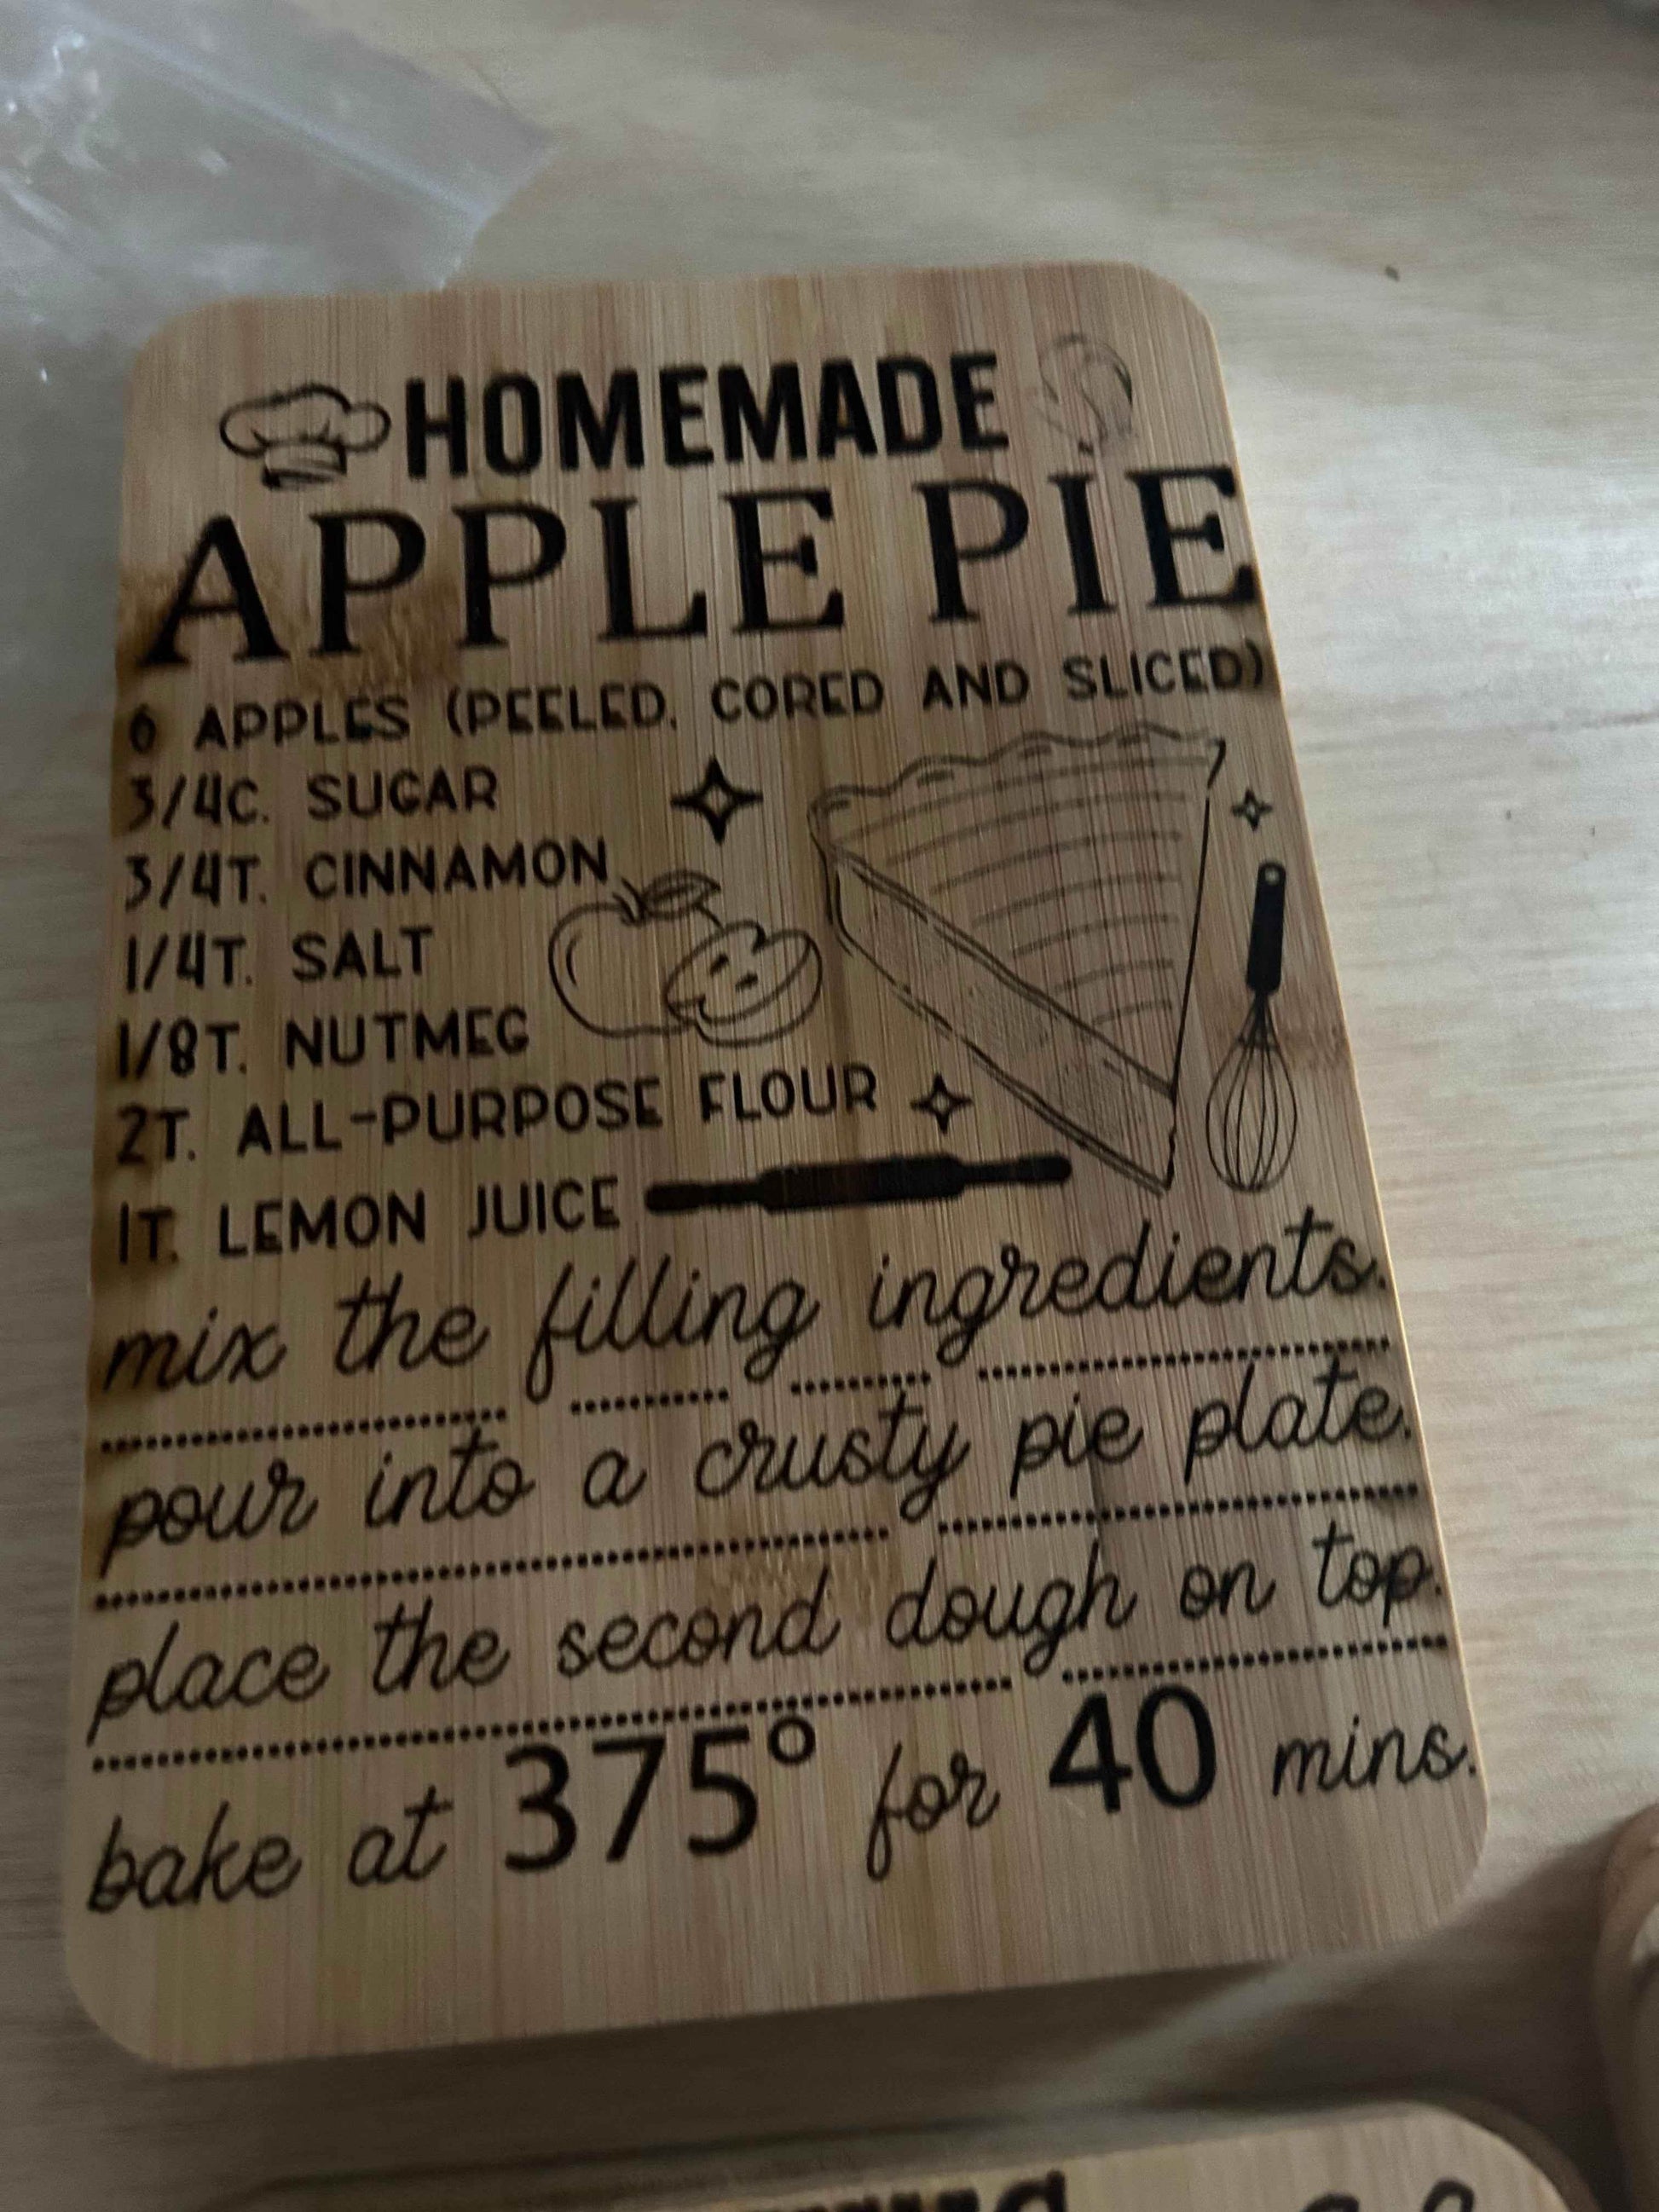 HOMEMADE
APPLE PIE
6 APPLES (PEELED, CORED AND SLICED)
3/4C. SUGAR
3/4T. CINNAMON
1/4T. SALT
1/8T. NUTMEG
2T. ALL-PURPOSE FLOUR
1T. LEMON JUICE
mix the filling ingredients.
pour into a crusty pie plate.
place the second dough on top.
bake at 375° for 40 mins.